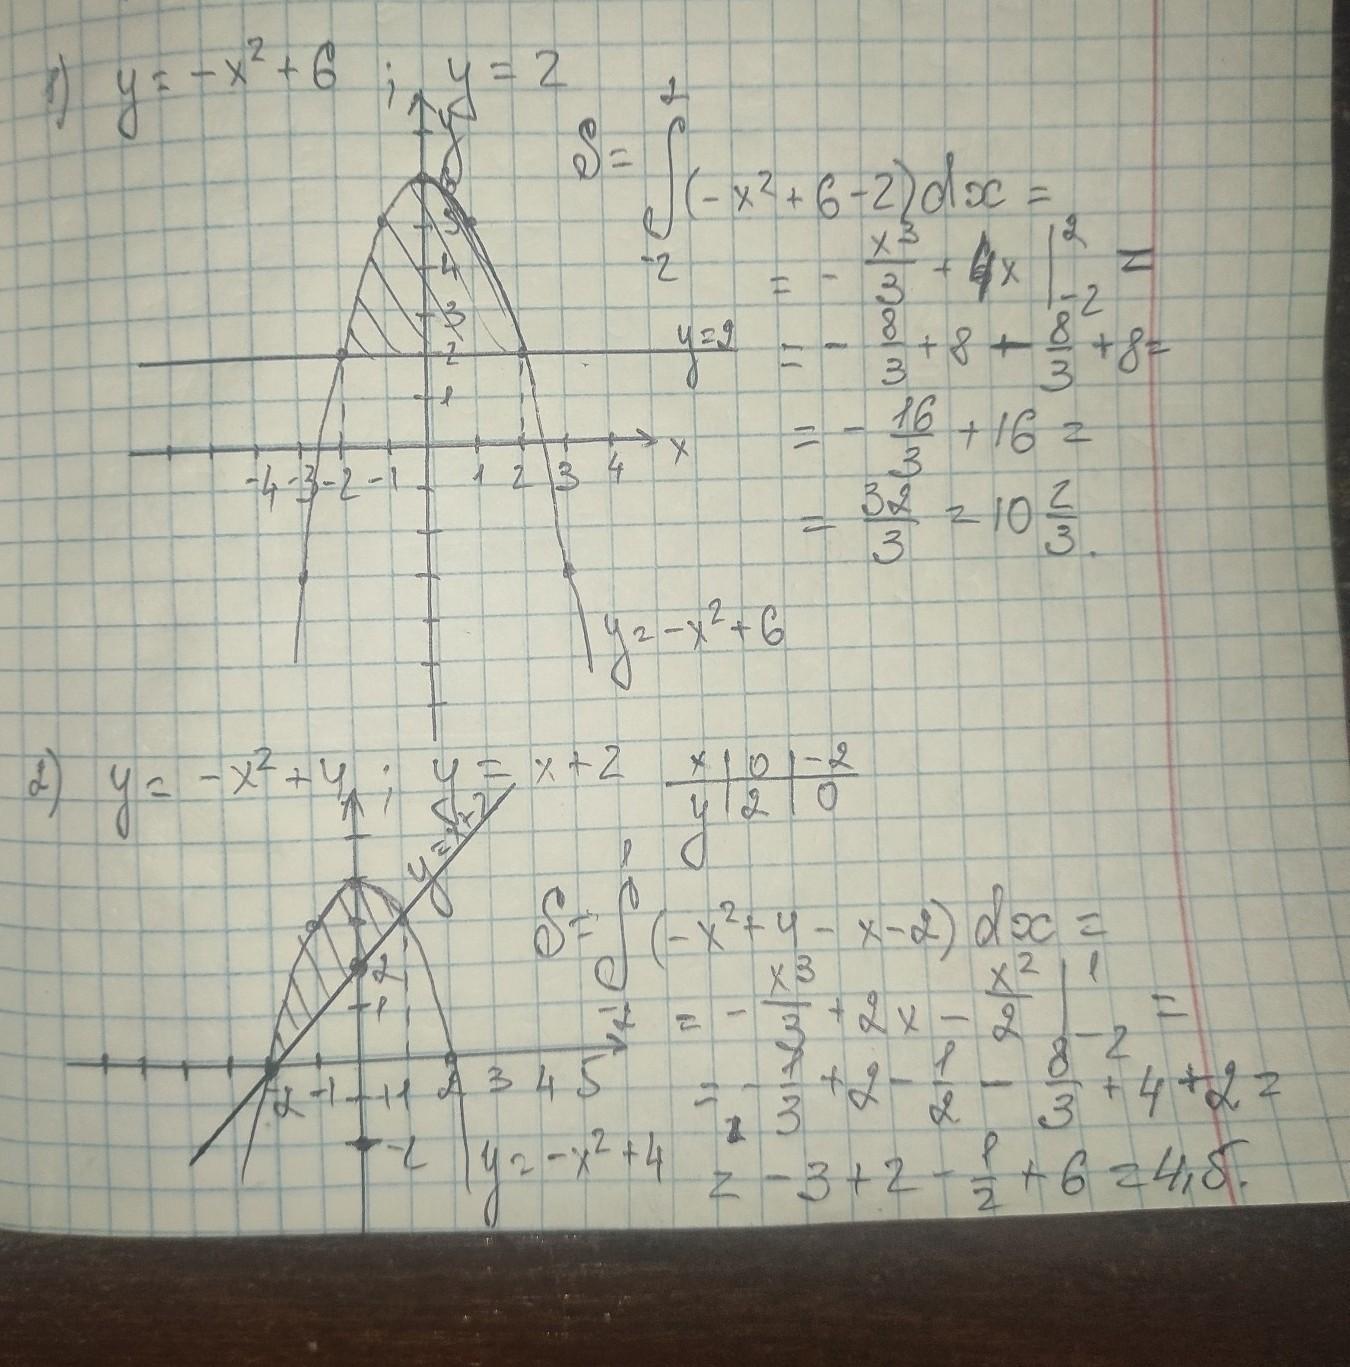 1) y = -x² + 6 ; y = 2
y
S = ∫₋₂² (-x² + 6 - 2) dx =
= - x³/3 + 4x |₋₂² =
= - 8/3 + 8 - 8/3 + 8 =
= - 16/3 + 16 =
= 32/3 = 10 2/3.
6
5
4
3
2
1
y = 2
-4 -3 -2 -1 1 2 3 4 x
y = -x² + 6
2) y = -x² + 4 ; y = x + 2
x | 0 | -2
y | 2 | 0
y = x+2
S = ∫₋₂¹ (-x² + 4 - x - 2) dx =
= - x³/3 + 2x - x²/2 |₋₂¹ =
= - 1/3 + 2 - 1/2 - 8/3 + 4 + 2 =
= - 3 + 2 - 1/2 + 6 = 4,5.
2
1
-2 -1 1 2 3 4 5
-2
y = -x² + 4